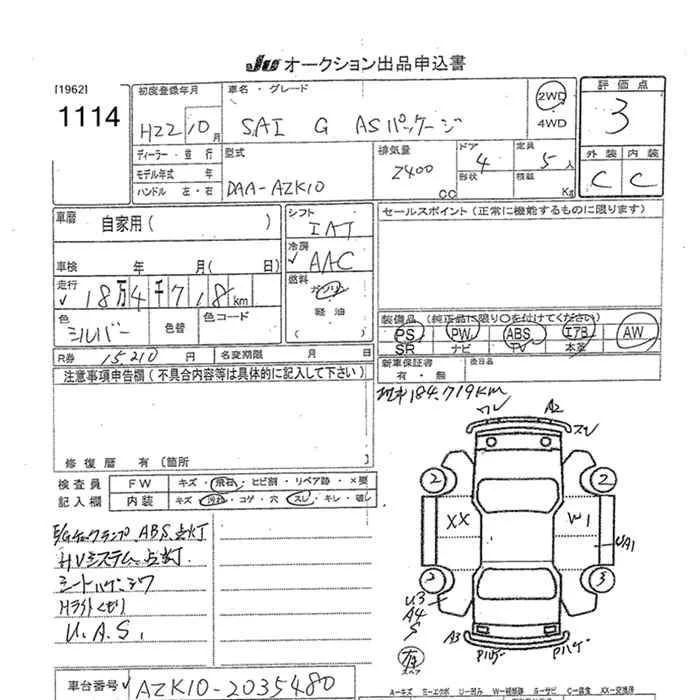 JU オークション出品申込書
[1962]
1114
初度登録年月 車名・グレード 評価点
H22 10月 SAI G ASパッケージ 2WD 4WD 3
ディーラー・並行 型式 排気量 ドア 定員 外装 内装
モデル年式 年 DAA-AZK10 2400 CC 4 形状 5人 積載 Kg C C
ハンドル 左・右
車歴 自家用 ( ) シフト IAT セールスポイント (正常に機能するものに限ります)
冷房 AAC
車検 年 月 ( 日)
走行 18万4千718km 燃料 ガソリン 軽油 ( )
色 シルバー 色替 色コード
装備品 (純正品に限り○を付けてください)
PS PW ABS エアB AW
SR ナビ TV 本革
R券 15,210円 名変期限 月 日
新車保証書 有・無 後日品
注意事項申告欄 (不具合内容等は具体的に記入して下さい)
184,719km
修復歴 有 (箇所
検査員 FW キズ・飛石・ヒビ割・リペア跡・×要
記入欄 内装 キズ・汚れ・コゲ・穴・スレ・キレ・破レ
E/Gチェックランプ、ABS点灯
HVシステム点灯
シート
Hライトくもり
U.A.S.
ワレ A2
2 2
XX W1
UA1
2 3
U3
A4
S
A3 Pハゲ Pハゲ
スペア
車台番号 AZK10-2035480
A-キズ U-凹ミ XX-交換済